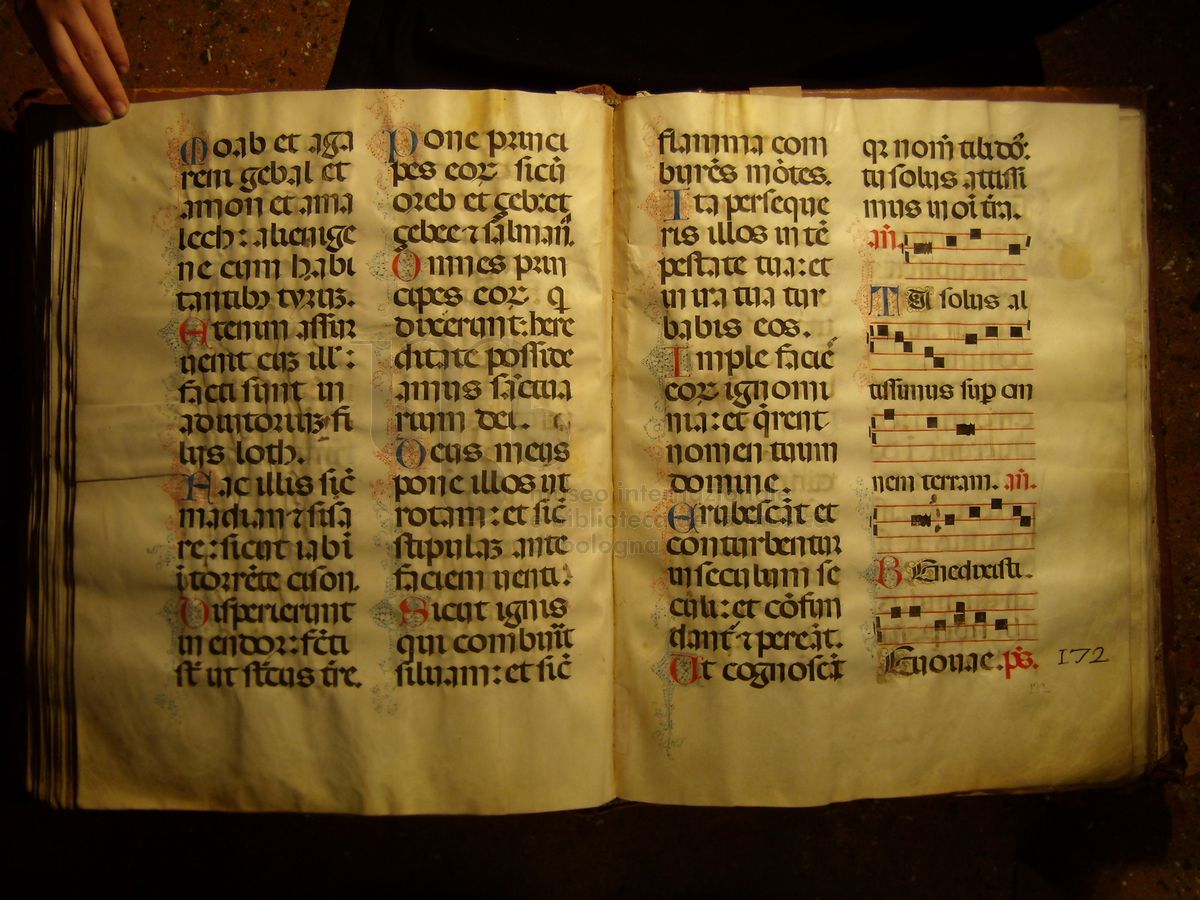 Moab et aga
reni gebal et
amon et ama
lech: alienige
ne cum habi
tantibꝰ tyrūꝫ.
Etenim assur
uenit cuꝫ ill̓:
facti sunt in
adiutoriuꝫ fi
lijs loth.
Fac illis sic̄
madian ⁊ sisa
re: sicut iabī
ī torrēte cison.
Disperierunt
in endor: fc̄ti
st̄ ut st̄cus tr̄e.
Pone princi
pes eoꝝ sicut
oreb et ᵹeb: et
ᵹebee ⁊ salmaā.
Omnes prin
cipes eoꝝ q̄
dixerunt: here
ditate posside
amus sāctua
rium dei.
Deus meus
pone illos ut
rotam: et sic̄
stipulaꝫ ante
faciem uenti.
Sicut ignis
qui combūit
siluam: et sic̄
flamma com
burēs mōtes.
Ita perseque
ris illos in tē
pestate tua: et
in ira tua tur
babis eos.
Imple faciē
eoꝝ ignomi
nia: et q̄rent
nomen tuum
domine.
Erubescāt et
conturbentur
in seculum se
culi: et cōfun
dant̄ ⁊ pereāt.
Et cognoscāt
qr nom̄ tibi dō̄:
tu solus altissi
mus in oī tr̄a.
an̄.
Tu solus al
tissimus suꝑ om
nem terram. an̄.
Benedixisti.
Euouae. ps̄.
172
museo internazionale
e biblioteca della musica
bologna